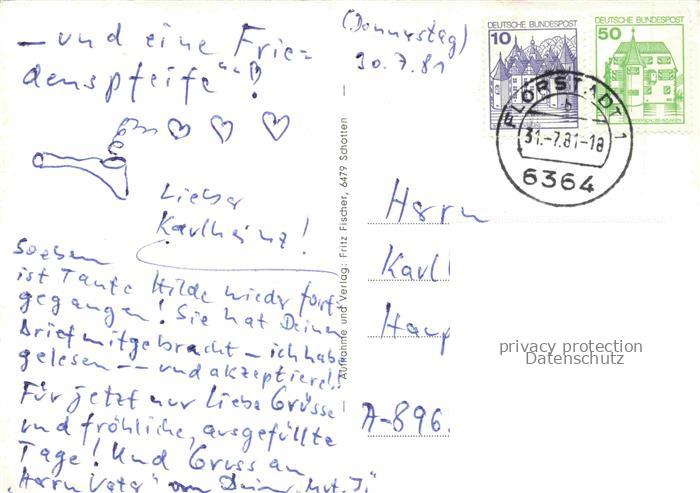 – und eine Frie=
denspfeife"!
(Donnerstag)
30.7.81
Lieber
Karlheinz!
Soeben
ist Tante Hilde wieder fort-
gegangen! Sie hat Deinen
Brief mitgebracht – ich hab
gelesen -- und akzeptiere!!
Für jetzt nur liebe Grüsse
und fröhliche, ausgefüllte
Tage! Und Gruss an
"Herrn Vater" von Deiner
Aufnahme und Verlag: Fritz Fischer, 6479 Schotten
DEUTSCHE BUNDESPOST
10
DEUTSCHE BUNDESPOST
50
FLORSTADT 1
b
31.-7.81-18
6364
Herrn
Karl
Haup
A-896.
privacy protection
Datenschutz